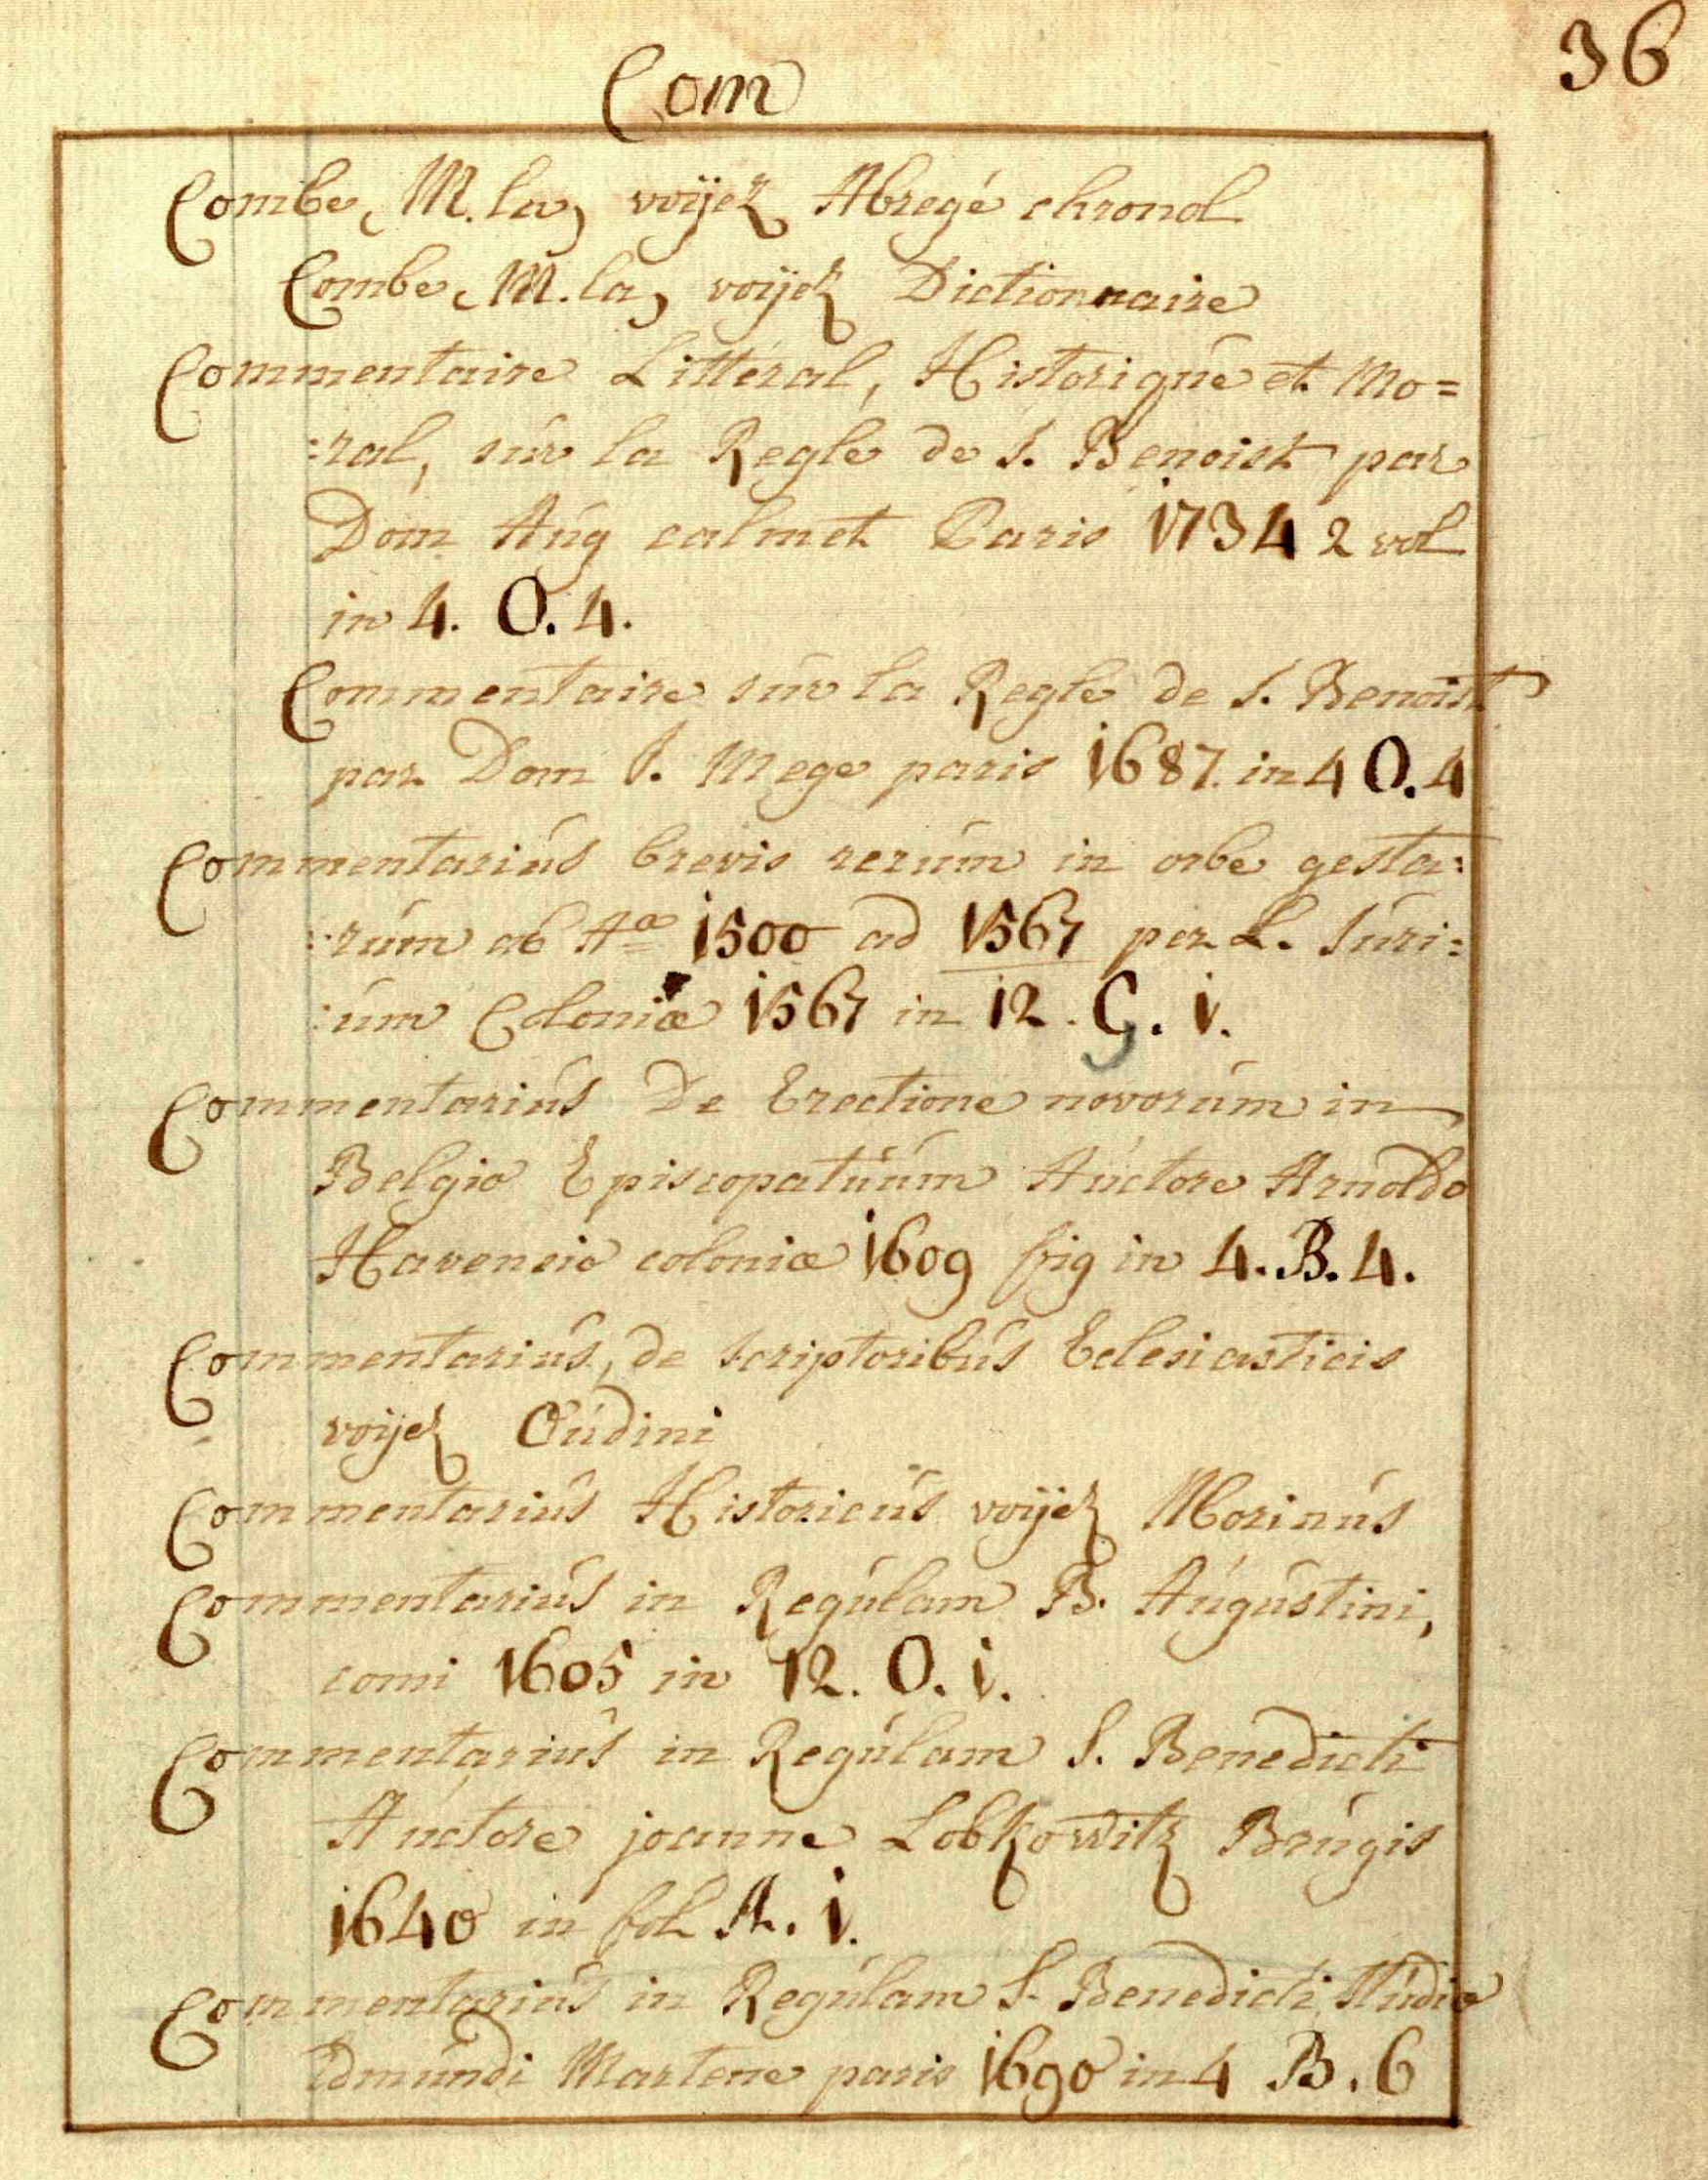 36
Com
Combe, M. la, voijez Abregé chronol
Combe, M. la, voijez Dictionnaire
Commentaire Litteral, Historique et Mo=
:ral, sur la Regle de S. Benoist par
Dom Aug calmet Paris 1734 2 vol
in 4. O. 4.
Commentaire sur la Regle de S. Benoist
par Dom J. Mege paris 1687. in 4 O. 4
Commentarius brevis rerum in orbe gesta:
:rum ab Aº 1500 ad 1567 per L. Suri:
:um Coloniæ 1567 in 12. G. i.
Commentarius De Erectione novorum in
Belgio Episcopatuum Auctore Arnoldo
Havensio coloniæ 1609 fig in 4. B. 4.
Commentarius, de scriptoribus Eclesiasticis
voijez Oudini
Commentarius Historicus voijez Morinus
Commentarius in Regulam B. Augustini,
comi 1605 in 12. O. i.
Commentarius in Regulam S. Benedicti
Auctore joanne Lobkowitz Brugis
1640 in fol A. i.
Commentarius in Regulam S. Benedicti Studio
Edmundi Martene paris 1690 in 4 B. 6